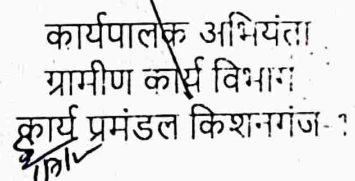 कार्यपालक अभियंता
ग्रामीण कार्य विभाग
कार्य प्रमंडल किशनगंज-१